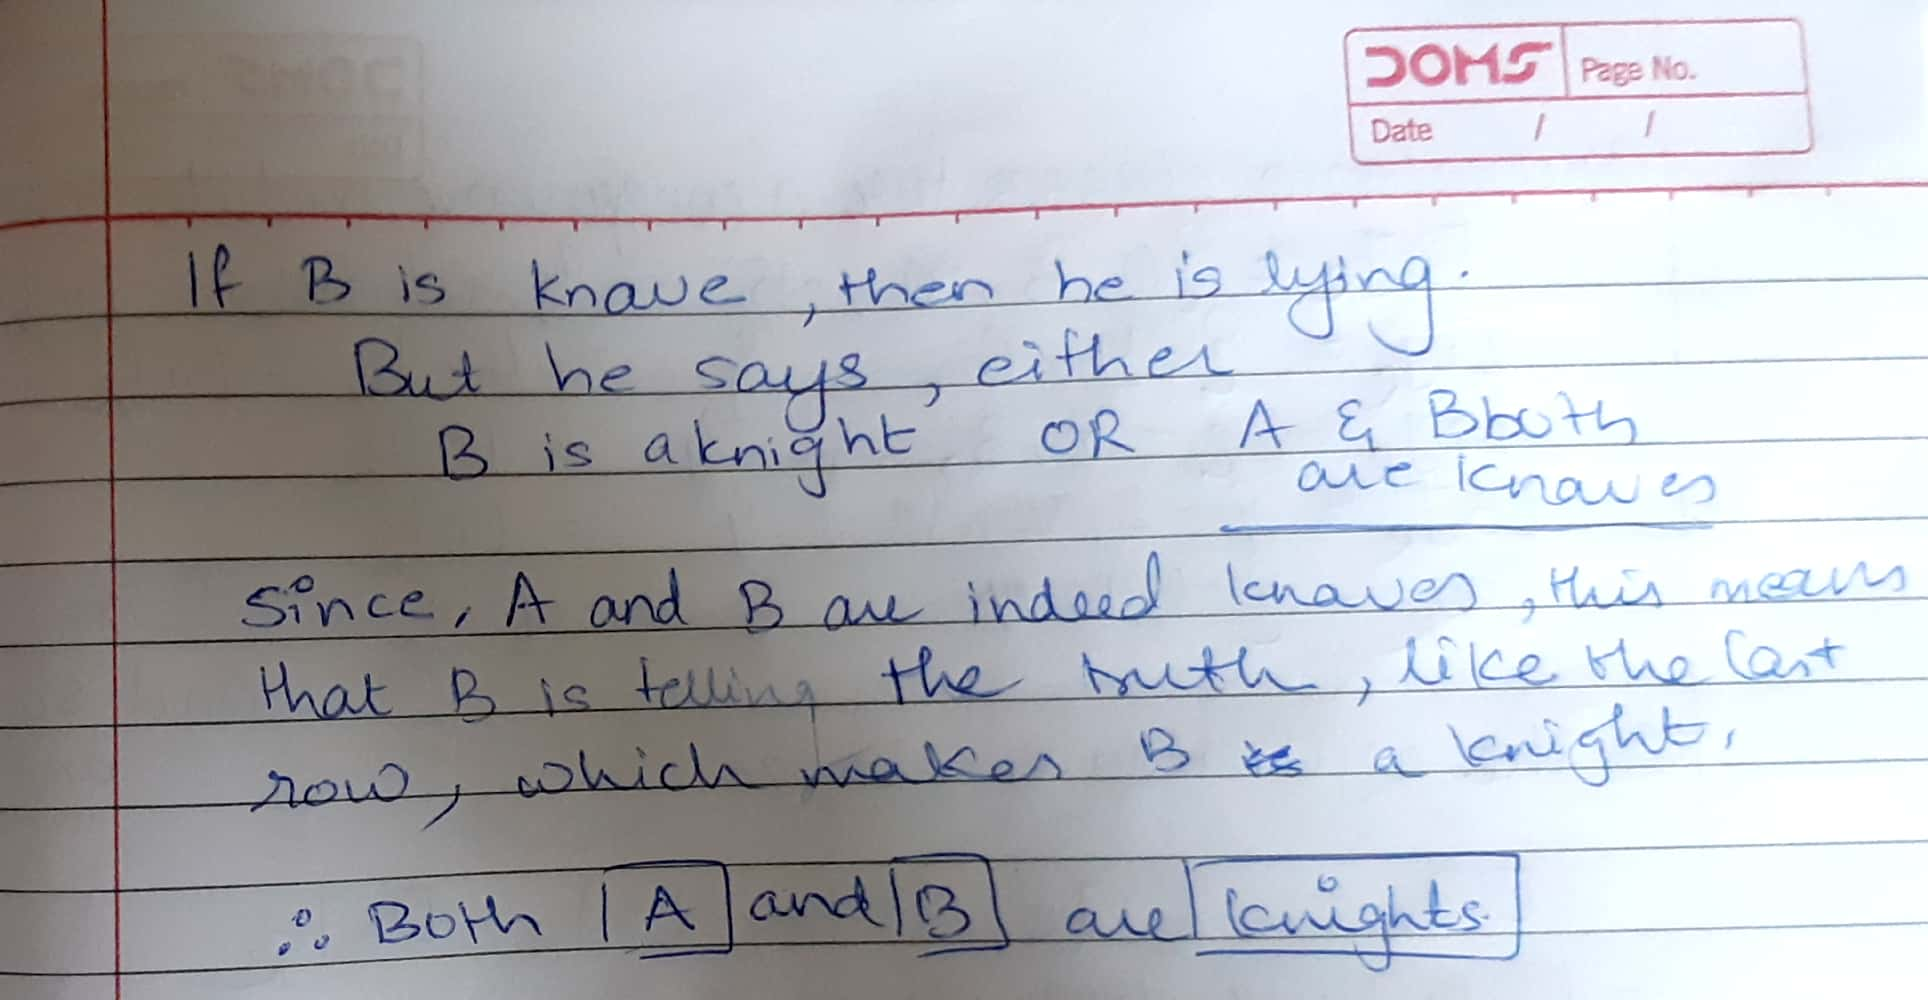 DOMS Page No.
Date / /
If B is knave, then he is lying.
But he says, either
B is a knight OR A & B both
are knaves
Since, A and B are indeed knaves, this means
that B is telling the truth, like the last
row, which makes B is a knight.
∴ Both A and B are knights.